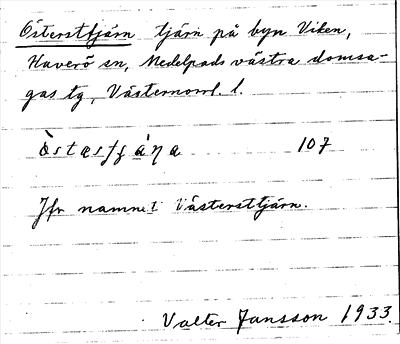 Östersttjärn tjärn på byn Viken,
Haverö sn, Medelpads västra domsa-
gas tg, Västernorrl. l.
107
Jfr namnet Västersttjärn.
Valter Jansson 1933.